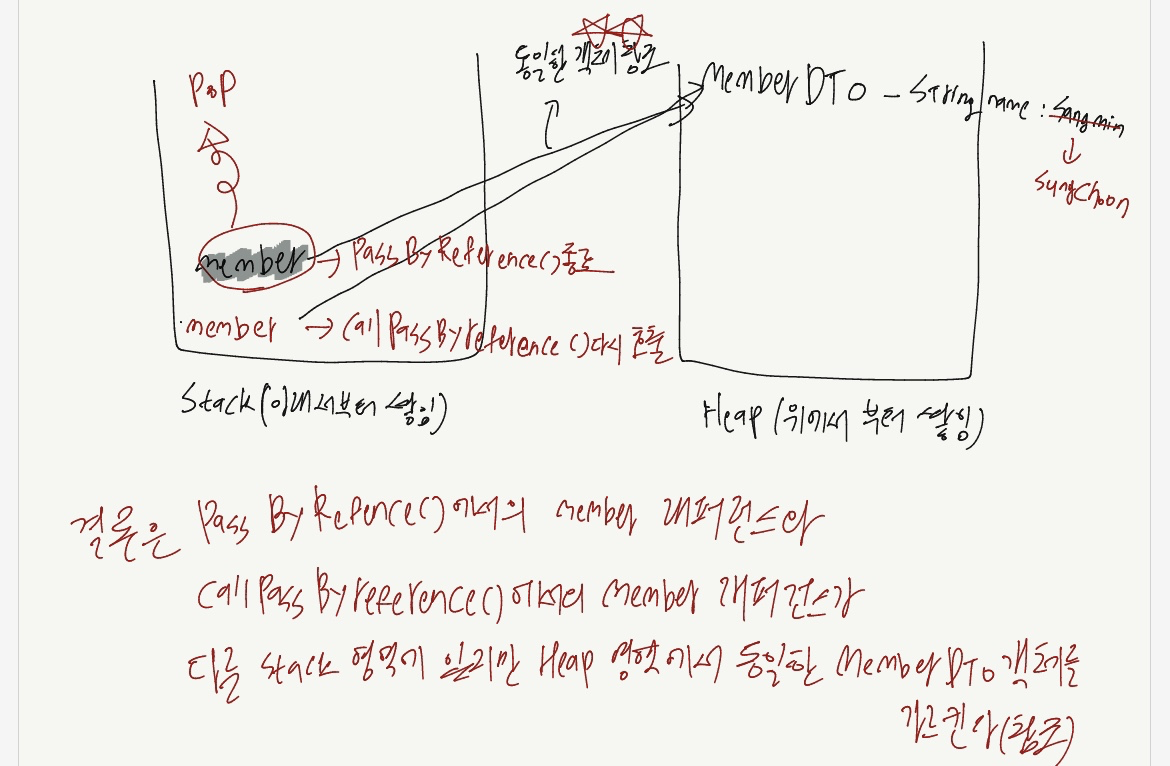 동일한 객체 참조
PoP
MemberDTO - String name : Sangmin
↓
SungChoon
member → PassByReference()종료
member → CallPassByreference()다시 호출
Stack(아래서부터 쌓임)
Heap (위에서 부터 쌓임)
결론은 Pass By Refence()에서의 member 래퍼런스와
Call Pass Byreference()에서의 member 래퍼런스가
다른 Stack 영역에 있지만 Heap 영역에서 동일한 MemberDTo객체를
가르킨다(참조)